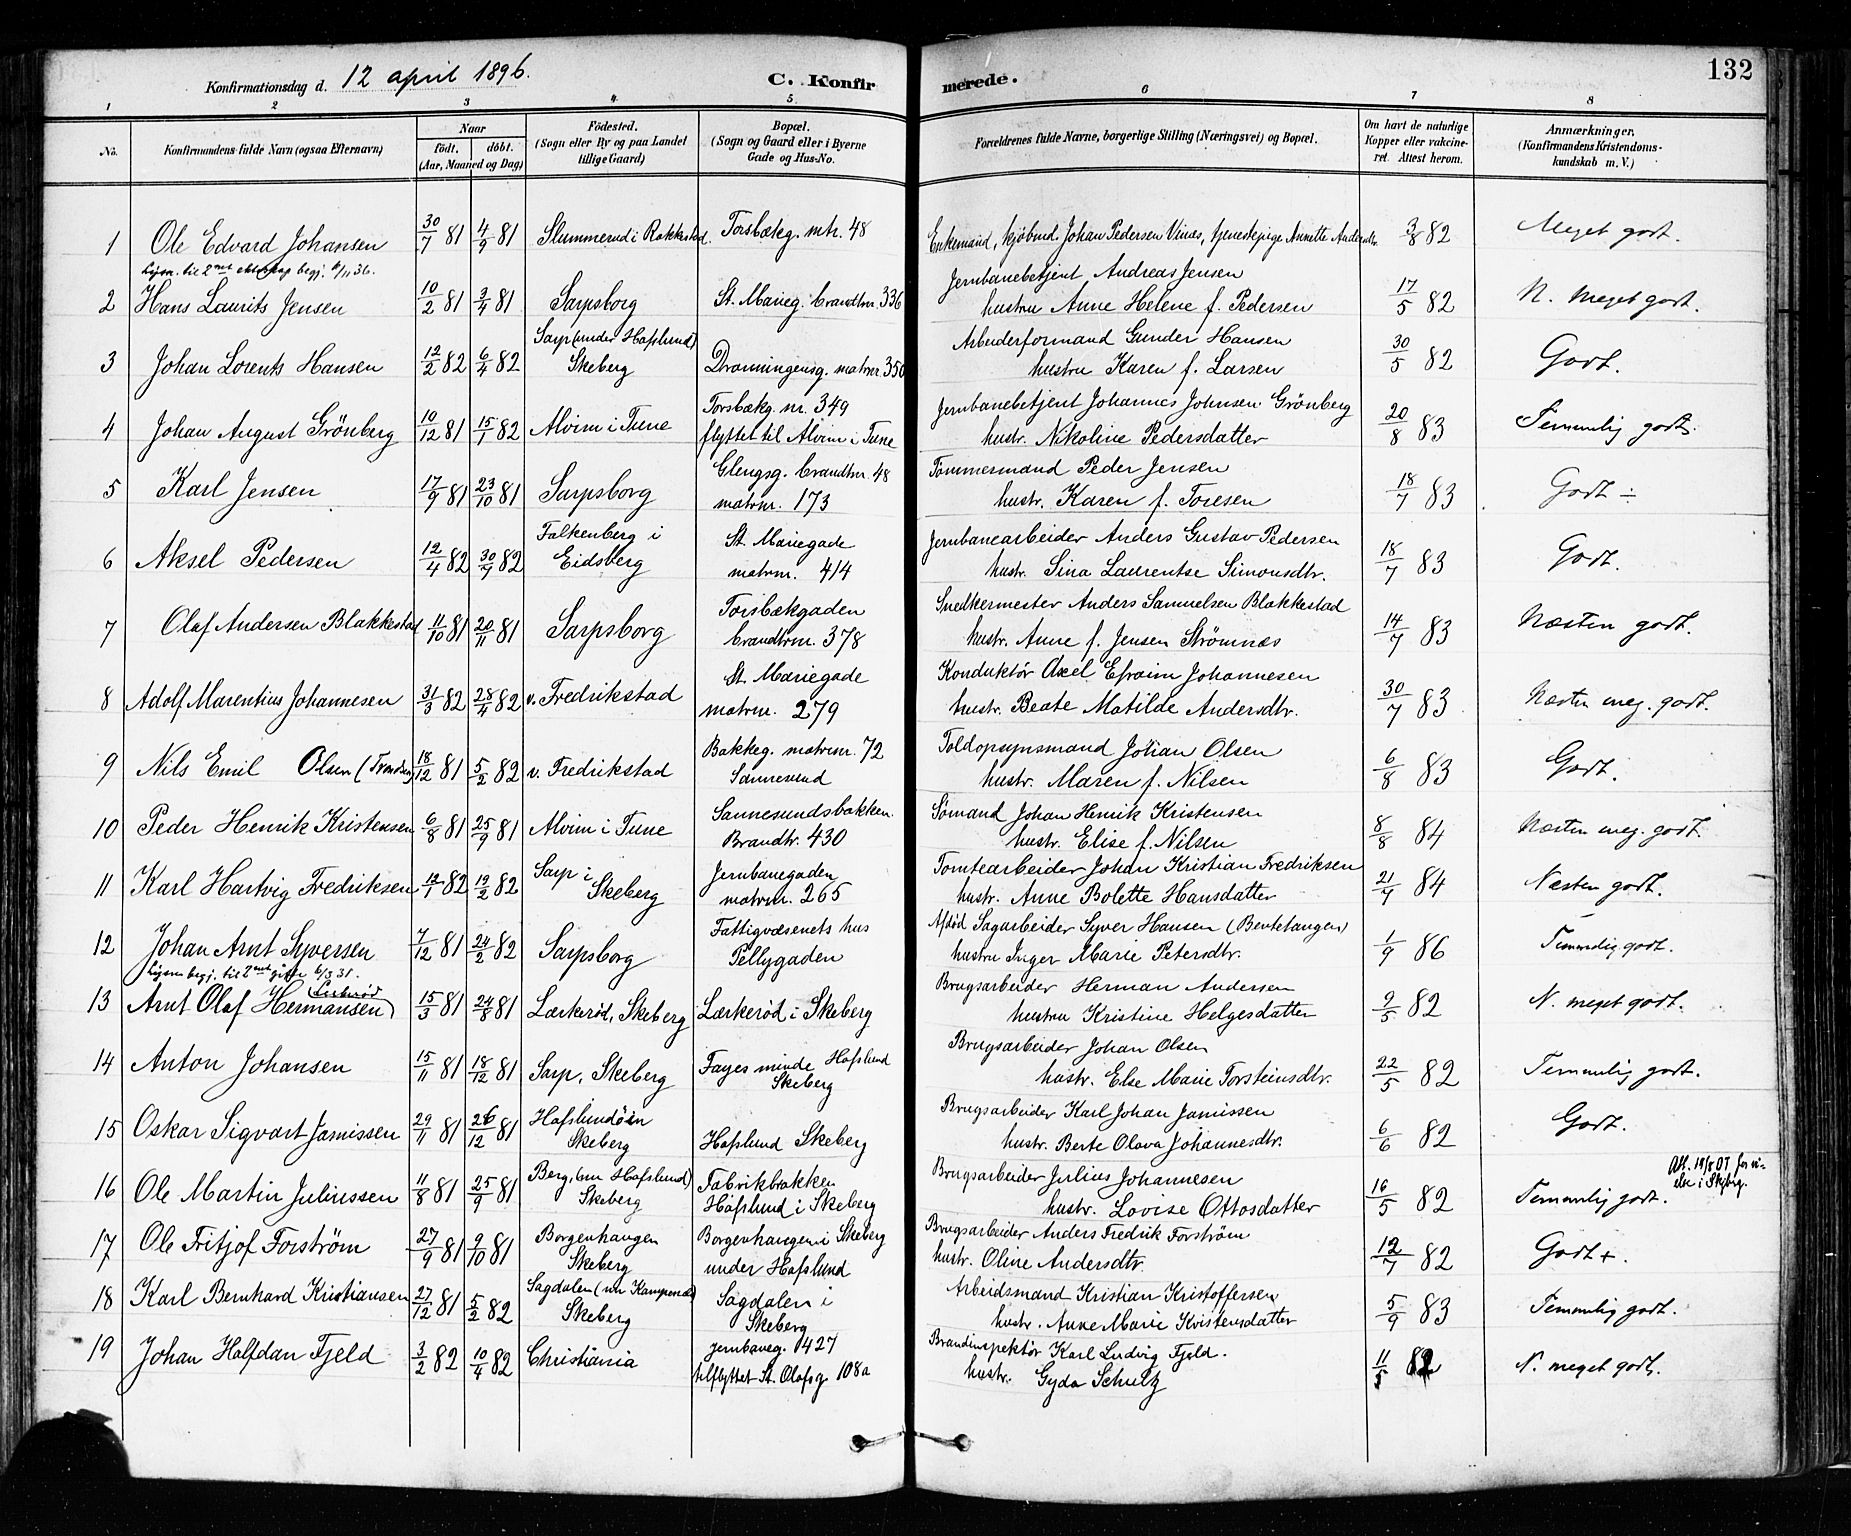 132
Konfirmationsdag d. 12 april 1896.
C. Konfirmerede.
1 2 3 4 5 6 7 8
No.
Konfirmandens fulde Navn (ogsaa Efternavn)
Naar
født. døbt.
(Aar, Maaned og Dag)
Fødested.
(Sogn eller By og paa Landet
tillige Gaard)
Bopæl.
(Sogn og Gaard eller i Byerne
Gade og Hus-No.
Forældrenes fulde Navne, borgerlige Stilling (Næringsvei) og Bopæl.
Om havt de naturlige
Kopper eller vakcine-
ret. Attest herom.
Anmærkninger.
(Konfirmandens Kristendoms-
kundskab m. V.)
1 Ole Edvard Johansen 30/7 81 4/9 81 Slummerud i Rakkestad. Torsbækg. mtr. 48 Enkemand, kjøbmd. Johan Pedersen Vinæs, tjenestepige Annette Andersdtr. 3/8 82 Meget godt.
Lysn. til 2net ekteskap begj. 6/11 36.
2 Hans Laurits Jensen 10/2 81 3/4 81 Sarpsborg St. Marieg. brandtnr. 336 Jernbanebetjent Andreas Jensen
hustru Anne Helene f. Pedersen 17/5 82 N. meget godt.
3 Johan Lorents Hansen 12/2 82 6/4 82 Sarp (under Hafslund)
Skeberg Dronningensg. matrnr. 350 Arbeiderformand Gunder Hansen
hustru Karen f. Larsen 30/5 82 Godt.
4 Johan August Grönberg 10/12 81 15/1 82 Alvim i Tune Torsbækg. nr. 349
flyttet til Alvim i Tune Jernbanebetjent Johannes Johnsen Grönberg
hustr. Nikoline Pedersdatter 20/8 83 Temmelig godt.
5 Karl Jensen 17/9 81 23/10 81 Sarpsborg Glengsg. brandtnr. 48
matrnr. 173 Tømmermand Peder Jensen
hustr. Karen f. Toresen 18/7 83 Godt ÷
6 Aksel Pedersen 12/4 82 30/7 82 Falkenberg i
Eidsberg St. Mariegade
matrnr. 414 Jernbanearbeider Anders Gustav Pedersen
hustr. Sina Laurentse Simonsdtr. 18/7 83 Godt.
7 Olaf Andersen Blakkestad 11/10 81 20/11 81 Sarpsborg Torsbækgaden
brandtrnr. 378 Snedkermester Anders Samuelsen Blakkestad
hustr. Anne f. Jensen Strømnæs 14/7 83 Næsten godt.
8 Adolf Marentius Johannesen 31/3 82 28/4 82 v. Fredrikstad St. Mariegade
matrnr. 279 Konduktör Axel Efraim Johannesen
hustr. Beate Matilde Andersdtr. 30/7 83 Næsten meg. godt.
9 Nils Emil Olsen 18/12 81 5/2 82 v. Fredrikstad Bakkeg. matrnr. 72
Sannesund Toldopsynsmand Johan Olsen
hustr. Maren f. Nilsen 6/8 83 Godt.
10 Peder Henrik Kristensen 6/8 81 25/9 81 Alvim i Tune Sannesundsbakken
Brandtr. 430 Sømand Johan Henrik Kristensen
hustr. Elise f. Nilsen 8/8 84 Næsten meg. godt.
11 Karl Hartvig Fredriksen 12/1 82 19/2 82 Sarp i
Skeberg Jernbanegaden
matrnr. 265 Tomtearbeider Johan Kristian Fredriksen
hustr. Anne Bolette Hansdatter 21/7 84 Næsten godt.
12 Johan Arnt Syversen 7/12 81 24/2 82 Sarpsborg Fattigvæsenets hus
Pellygaden Afdød Sagarbeider Syver Hansen (Bentetangen)
hustru Inger Marie Petersdtr. 1/9 86 Temmelig godt.
Lysn begj. til 2net gifte 6/3 31.
13 Arnt Olaf Hermansen 15/3 81 24/8 81 Lærkerød, Skeberg Lærkerød i Skeberg Brugsarbeider Herman Andersen
hustru Kristine Helgesdatter 9/5 82 N. meget godt.
14 Anton Johansen 15/11 81 18/12 81 Sarp, Skeberg Fayes minde Hafslund
Skeberg Brugsarbeider Johan Olsen
hustr. Else Marie Torsteinsdtr. 22/5 82 Temmelig godt.
15 Oskar Sigvart Jamissen 29/11 81 26/12 81 Hafslundöen
Skeberg Hafslund Skeberg Brugsarbeider Karl Johan Jamissen
hustr. Berte Olava Johannesdtr. 6/6 82 Godt.
16 Ole Martin Juliussen 11/8 81 25/9 81 Berg, (un Hafslund)
Skeberg Fabrikbakken
Hafslund i Skeberg Brugsarbeider Julius Johannesen
hustr. Lovise Ottosdatter 16/5 82 Temmelig godt.
17 Ole Fritjof Forström 27/9 81 9/10 81 Borgenhaugen
Skeberg Borgenhaugen i Skeberg
under Hafslund Brugsarbeider Anders Fredrik Forström
hustr. Oline Andersdtr. 12/7 82 Godt +.
18 Karl Bernhard Kristiansen 27/12 81 5/2 82 Sagdalen
Skeberg Sagdalen i
Skeberg Arbeidsmand Kristian Kristoffersen
hustr. Anne Marie Kristensdatter 5/9 83 Temmelig godt.
19 Johan Halfdan Fjeld 3/2 82 10/4 82 Christiania Jernbaneg. 427
tilflyttet St. Olafsg. 108a Brandinspektör Karl Ludvig Fjeld.
hustr. Gyda Schultz 11/5 82 N. meget godt.